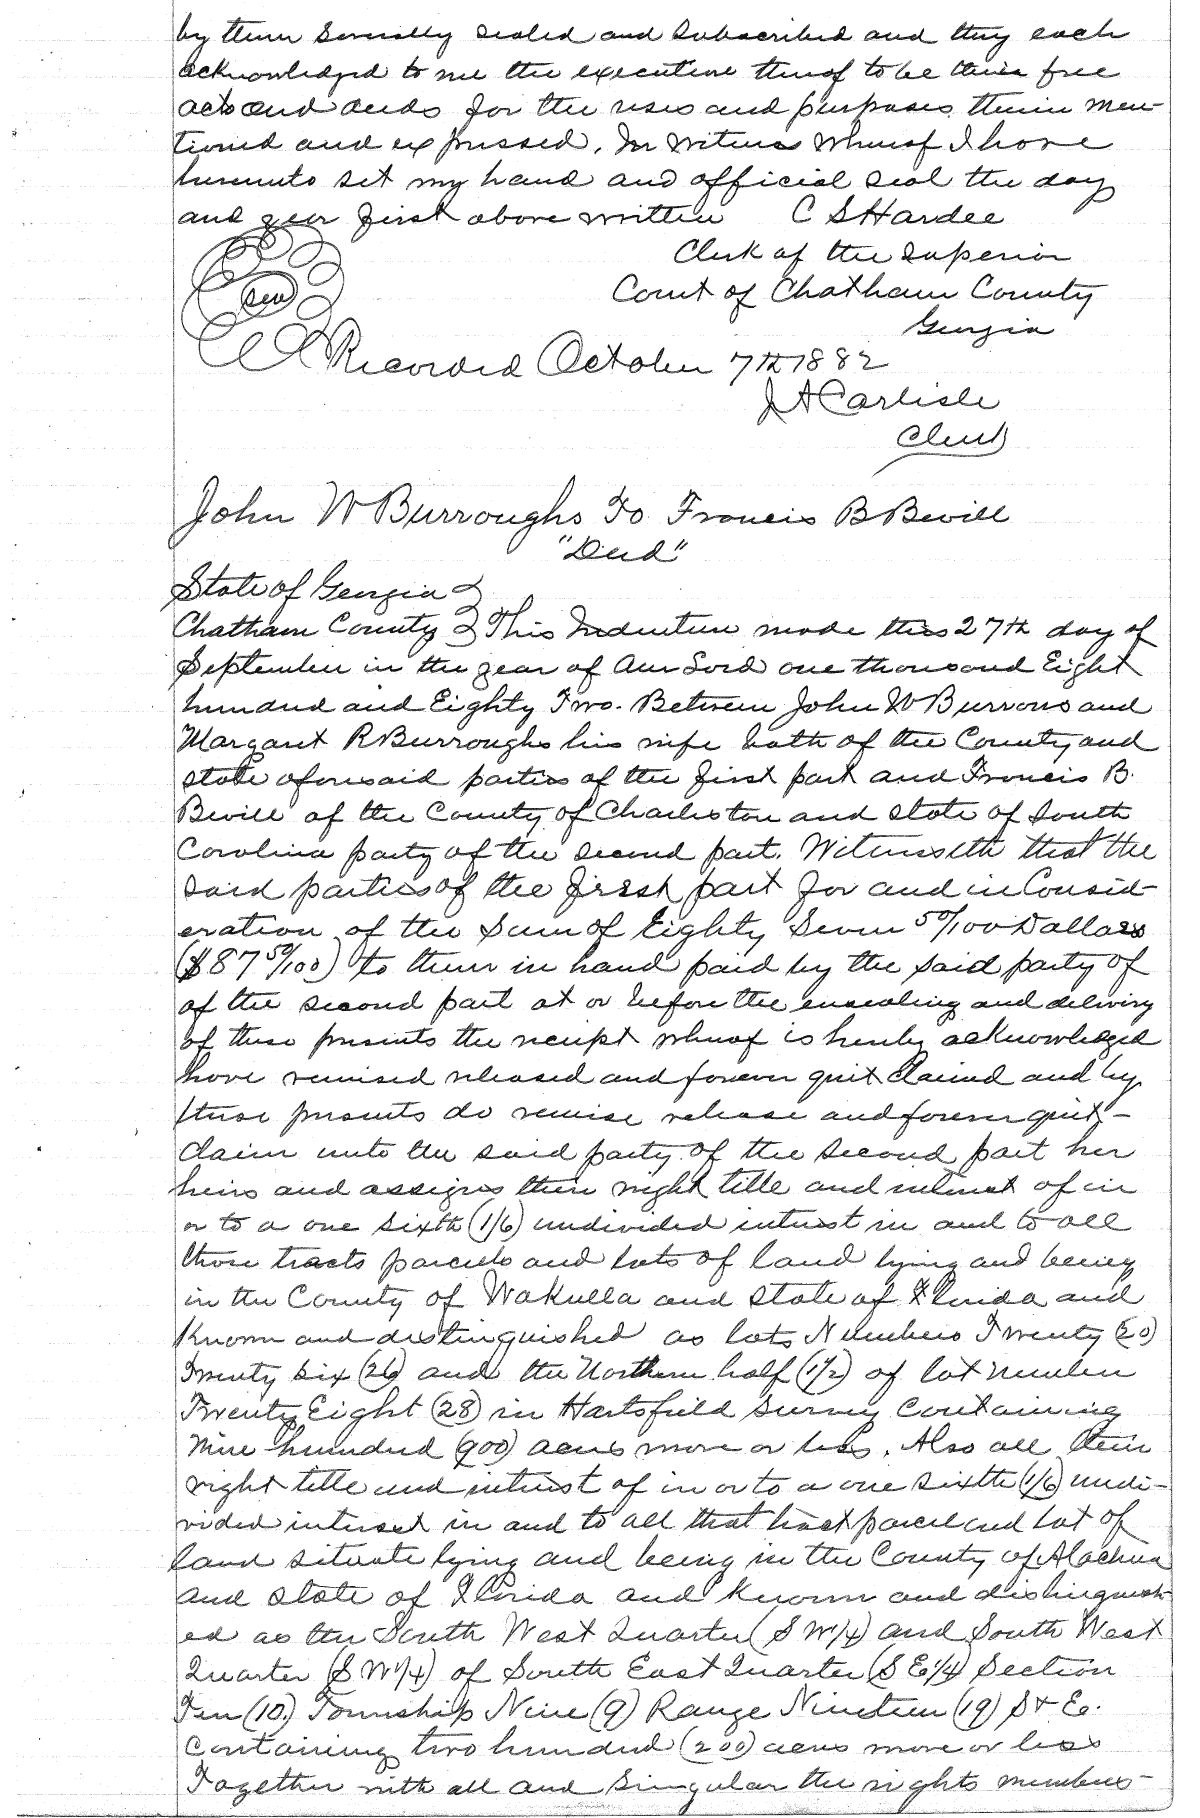 by them severally sealed and subscribed and they each
acknowledged to me the execution thereof to be their free
acts and deeds for the uses and purposes therein men-
tioned and expressed. In witness whereof I have
hereunto set my hand and official seal the day
and year first above written C S Hardee
Clerk of the Superior
Court of Chatham County
Georgia
Seal
Recorded October 7th 1882
J A Carlisle
Clerk
John W Burroughs To Francis B Bevill
"Deed"
State of Georgia }
Chatham County } This Indenture made this 27th day of
September in the year of Our Lord one thousand Eight
hundred and Eighty Two. Between John W Burrows and
Margaret R Burroughs his wife both of the County and
state aforesaid parties of the first part and Francis B.
Bevill of the County of Charleston and state of South
Carolina party of the second part. Witnesseth that the
said parties of the first part for and in Consid-
eration of the Sum of Eighty Seven 50/100 Dollars
($87 50/100) to them in hand paid by the said party of
of the second part at or before the ensealing and delivery
of these presents the receipt whereof is hereby acknowledged
have remised released and forever quit claimed and by
these presents do remise release and forever quit-
claim unto the said party of the second part her
heirs and assigns their right title and interest of in
or to a one sixth (1/6) undivided interest in and to all
those tracts parcels and lots of land lying and being
in the County of Wakulla and state of Florida and
Known and distinguished as lots Numbers Twenty (20)
Twenty six (26) and the Northern half (1/2) of lot number
Twenty Eight (28) in Hartsfield Survey Containing
Nine hundred (900) acres more or less. Also all their
right title and interest of in or to a one sixth (1/6) undi-
vided interest in and to all that tract parcel and lot of
land situate lying and being in the County of Alachua
and state of Florida and Known and distinguish-
ed as the South West Quarter (S W 1/4) and South West
Quarter (S W 1/4) of South East Quarter (S E 1/4) Section
Ten (10.) Township Nine (9) Range Nineteen (19) S & E.
Containing two hundred (200) acres more or less
Together with all and Singular the rights members-